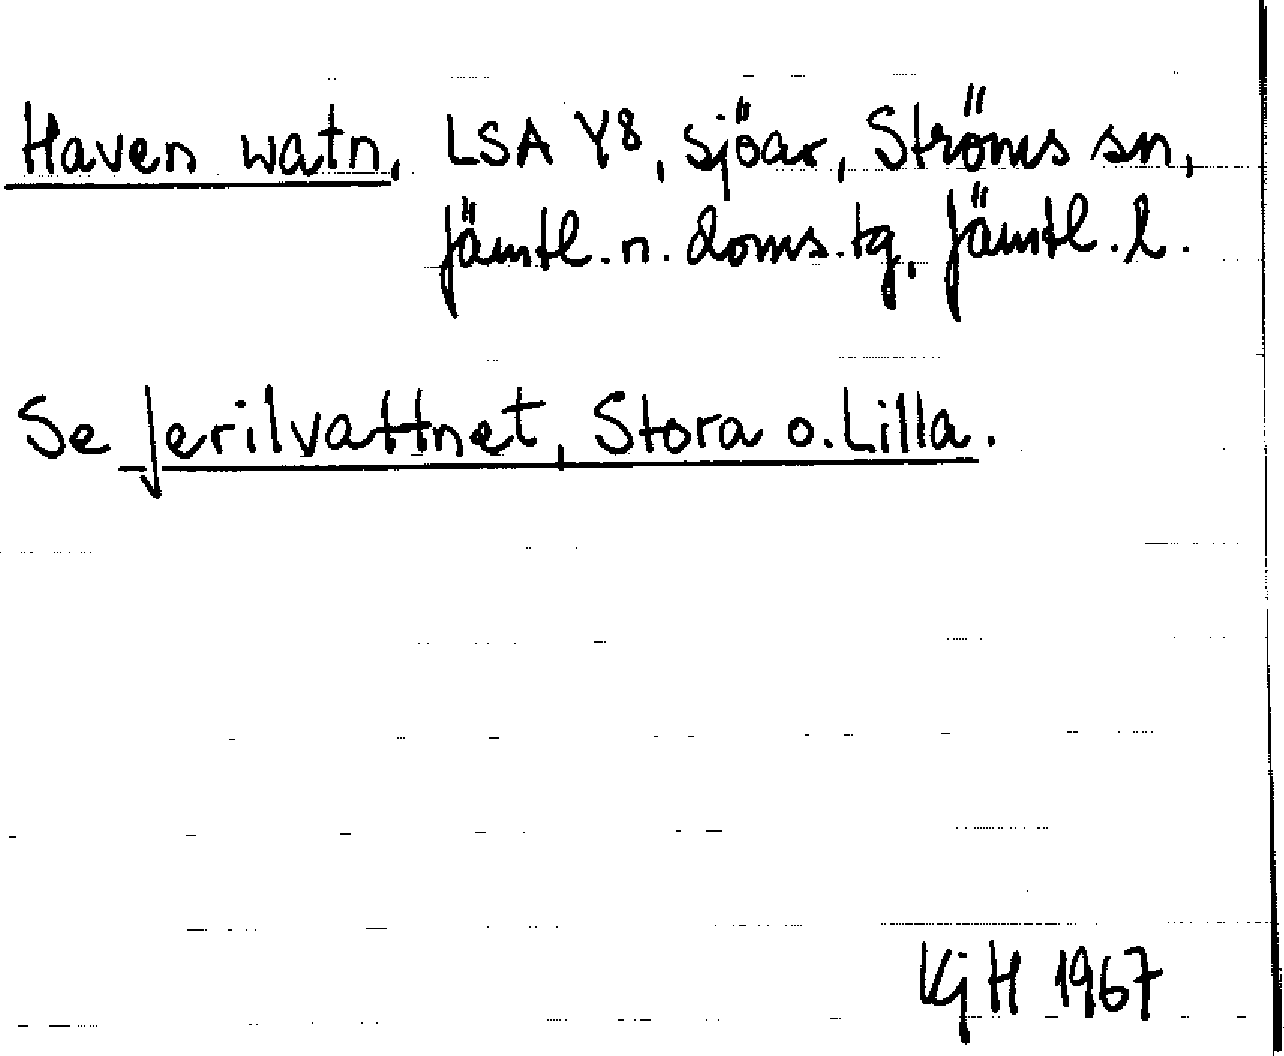 Haven watn, LSA Y8, sjöar, Ströms sn,
Jämtl. n. doms. tg, Jämtl. l.
Se Jerilvattnet, Stora o. Lilla.
KjH 1967